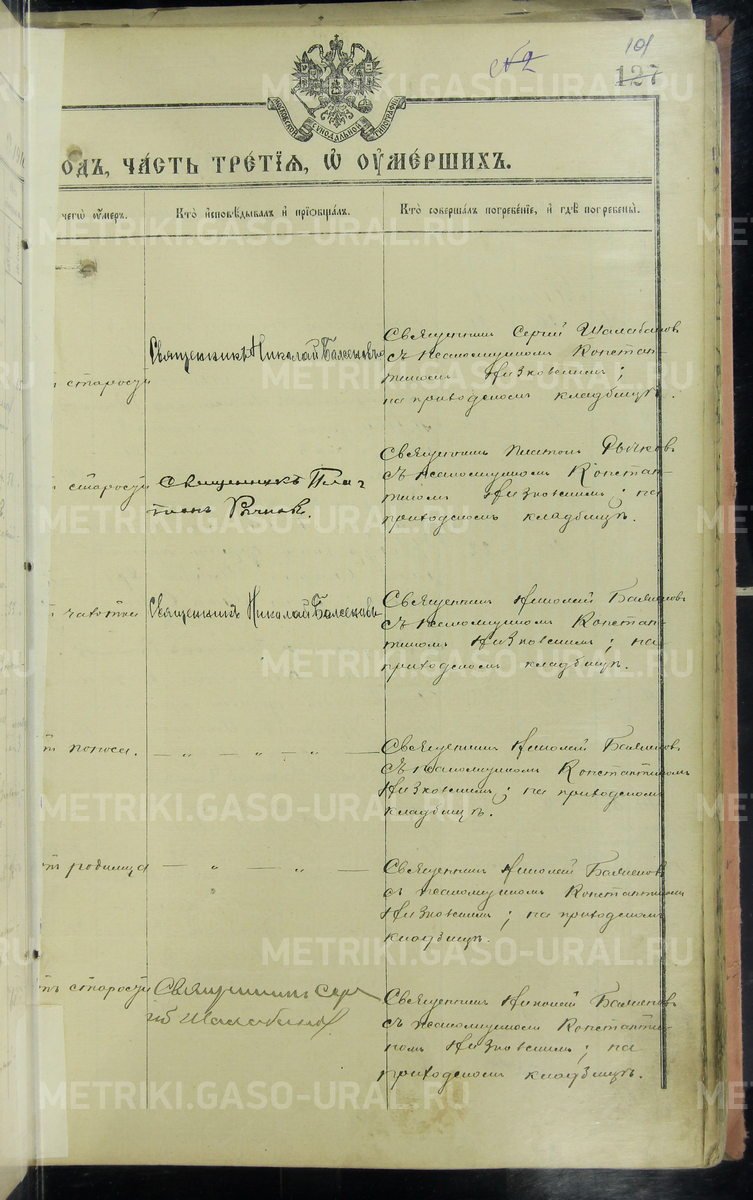 № 2
101
127
МОСКОВСКОЙ СѴНОДАЛЬНОЙ ТИПОГРАФІИ
ОДЪ, ЧА́СТЬ ТРЕ́ТІѦ, Ѡ ОУ҆МЕ́РШИХЪ.
чегѡ̀ ᲂу҆́меръ.
Кто̀ и҆сповѣ́дывалъ и҆ прїѡбща́лъ.
Кто̀ соверша́лъ погребе́нїе, и҆ гдѣ̀ погребены̀.
старости
Священникъ Николай Балсеновъ
Священник Сергий Шалабанов
съ псаломщиком Констан-
тином Низковским;
на приходском кладбищѣ.
старости
Священникъ Пла-
тонъ Рычков.
Священник Платон Рычков
съ псаломщиком Констан-
тином Низковским; на
приходском кладбищѣ.
чахотки
Священникъ Николай Балсеновъ
Священник Николай
съ псаломщиком Констан-
тином Низковским; на
приходском кладбищѣ.
поноса.
— „ — „ — „ —
Священник Николай
съ псаломщиком Константином
Низковским; на приходском
кладбищѣ.
родимца
— „ — „ —
Священник Николай
съ псаломщиком Константином
Низковским; на приходском
кладбищѣ.
старости
Священникъ Сер-
гій Шалабанов
Священник Николай
съ псаломщиком Константи-
ном Низковским; на
приходском кладбищѣ.
METRIKI.GASO-URAL.RU